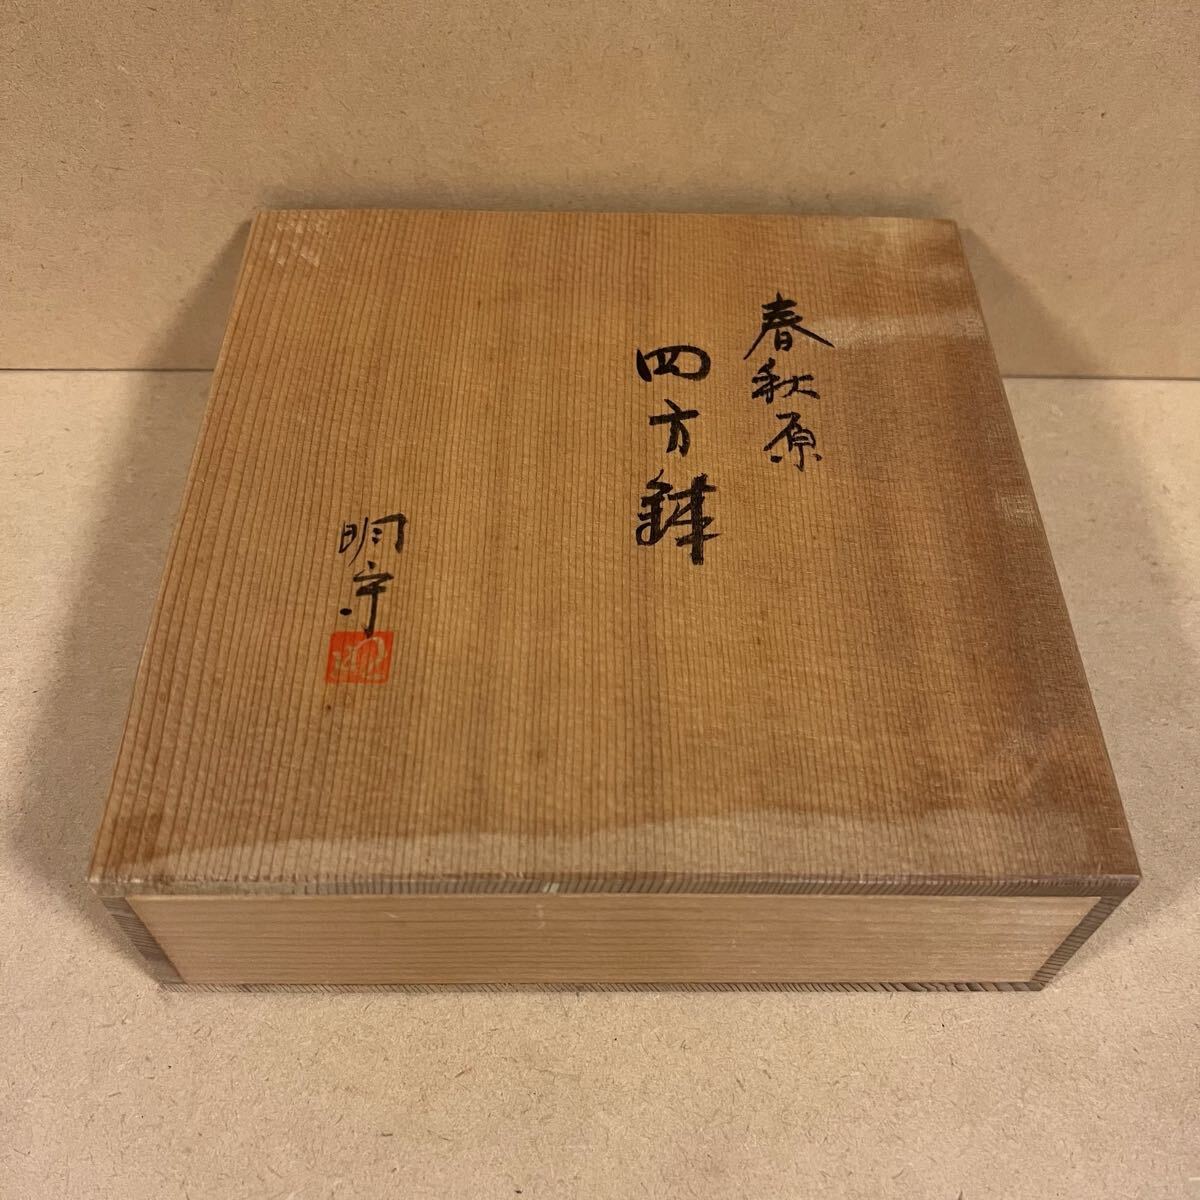 春秋原
四方鉢
明守